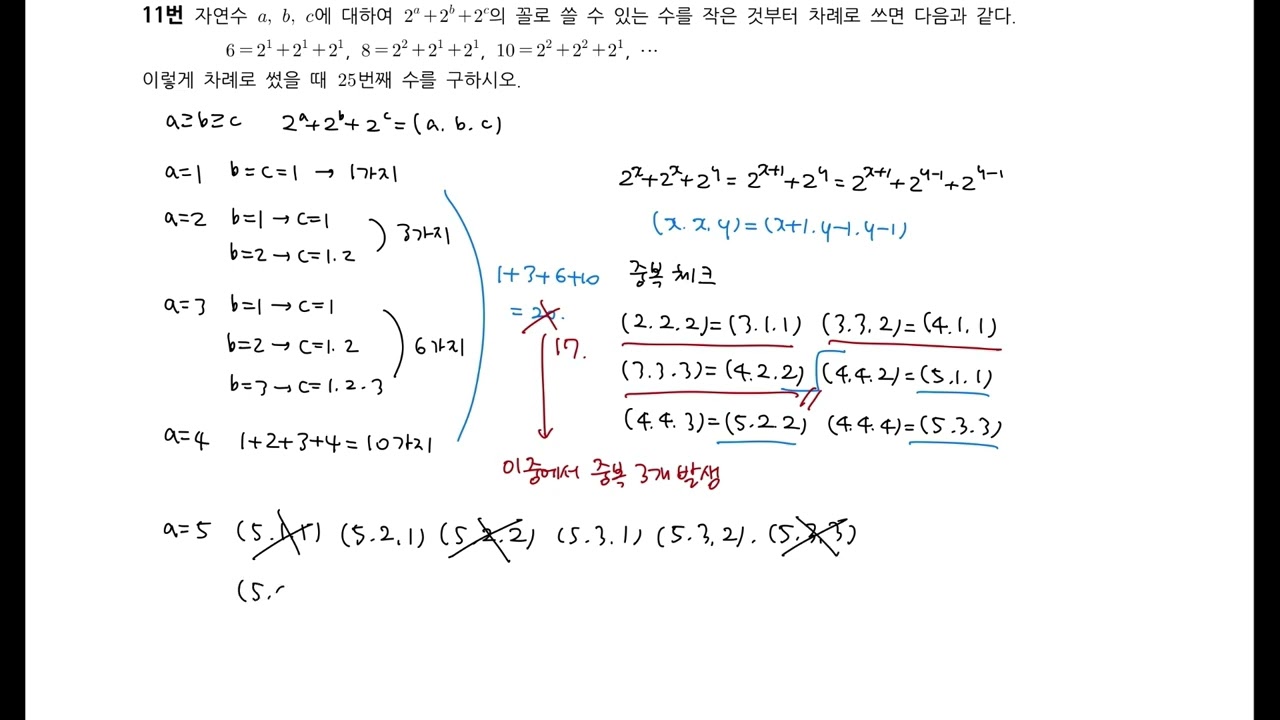 11번 자연수 a, b, c에 대하여 2^a+2^b+2^c의 꼴로 쓸 수 있는 수를 작은 것부터 차례로 쓰면 다음과 같다.
6=2^1+2^1+2^1, 8=2^2+2^1+2^1, 10=2^2+2^2+2^1, ⋯
이렇게 차례로 썼을 때 25번째 수를 구하시오.
a≥b≥c 2^a+2^b+2^c=(a.b.c)
a=1 b=c=1 → 1가지
a=2 b=1→c=1
b=2→c=1.2
3가지
a=3 b=1→c=1
b=2→c=1.2
b=3→c=1.2.3
6가지
a=4 1+2+3+4=10가지
1+3+6+10
=20.
17.
이중에서 중복 3개 발생
2^x+2^x+2^y=2^{x+1}+2^y=2^{x+1}+2^{y-1}+2^{y-1}
(x.x.y)=(x+1.y-1.y-1)
중복 체크
(2.2.2)=(3.1.1) (3.3.2)=(4.1.1)
(3.3.3)=(4.2.2) (4.4.2)=(5.1.1)
(4.4.3)=(5.2.2) (4.4.4)=(5.3.3)
a=5 (5.1.1) (5.2.1) (5.2.2) (5.3.1) (5.3.2). (5.3.3)
(5.